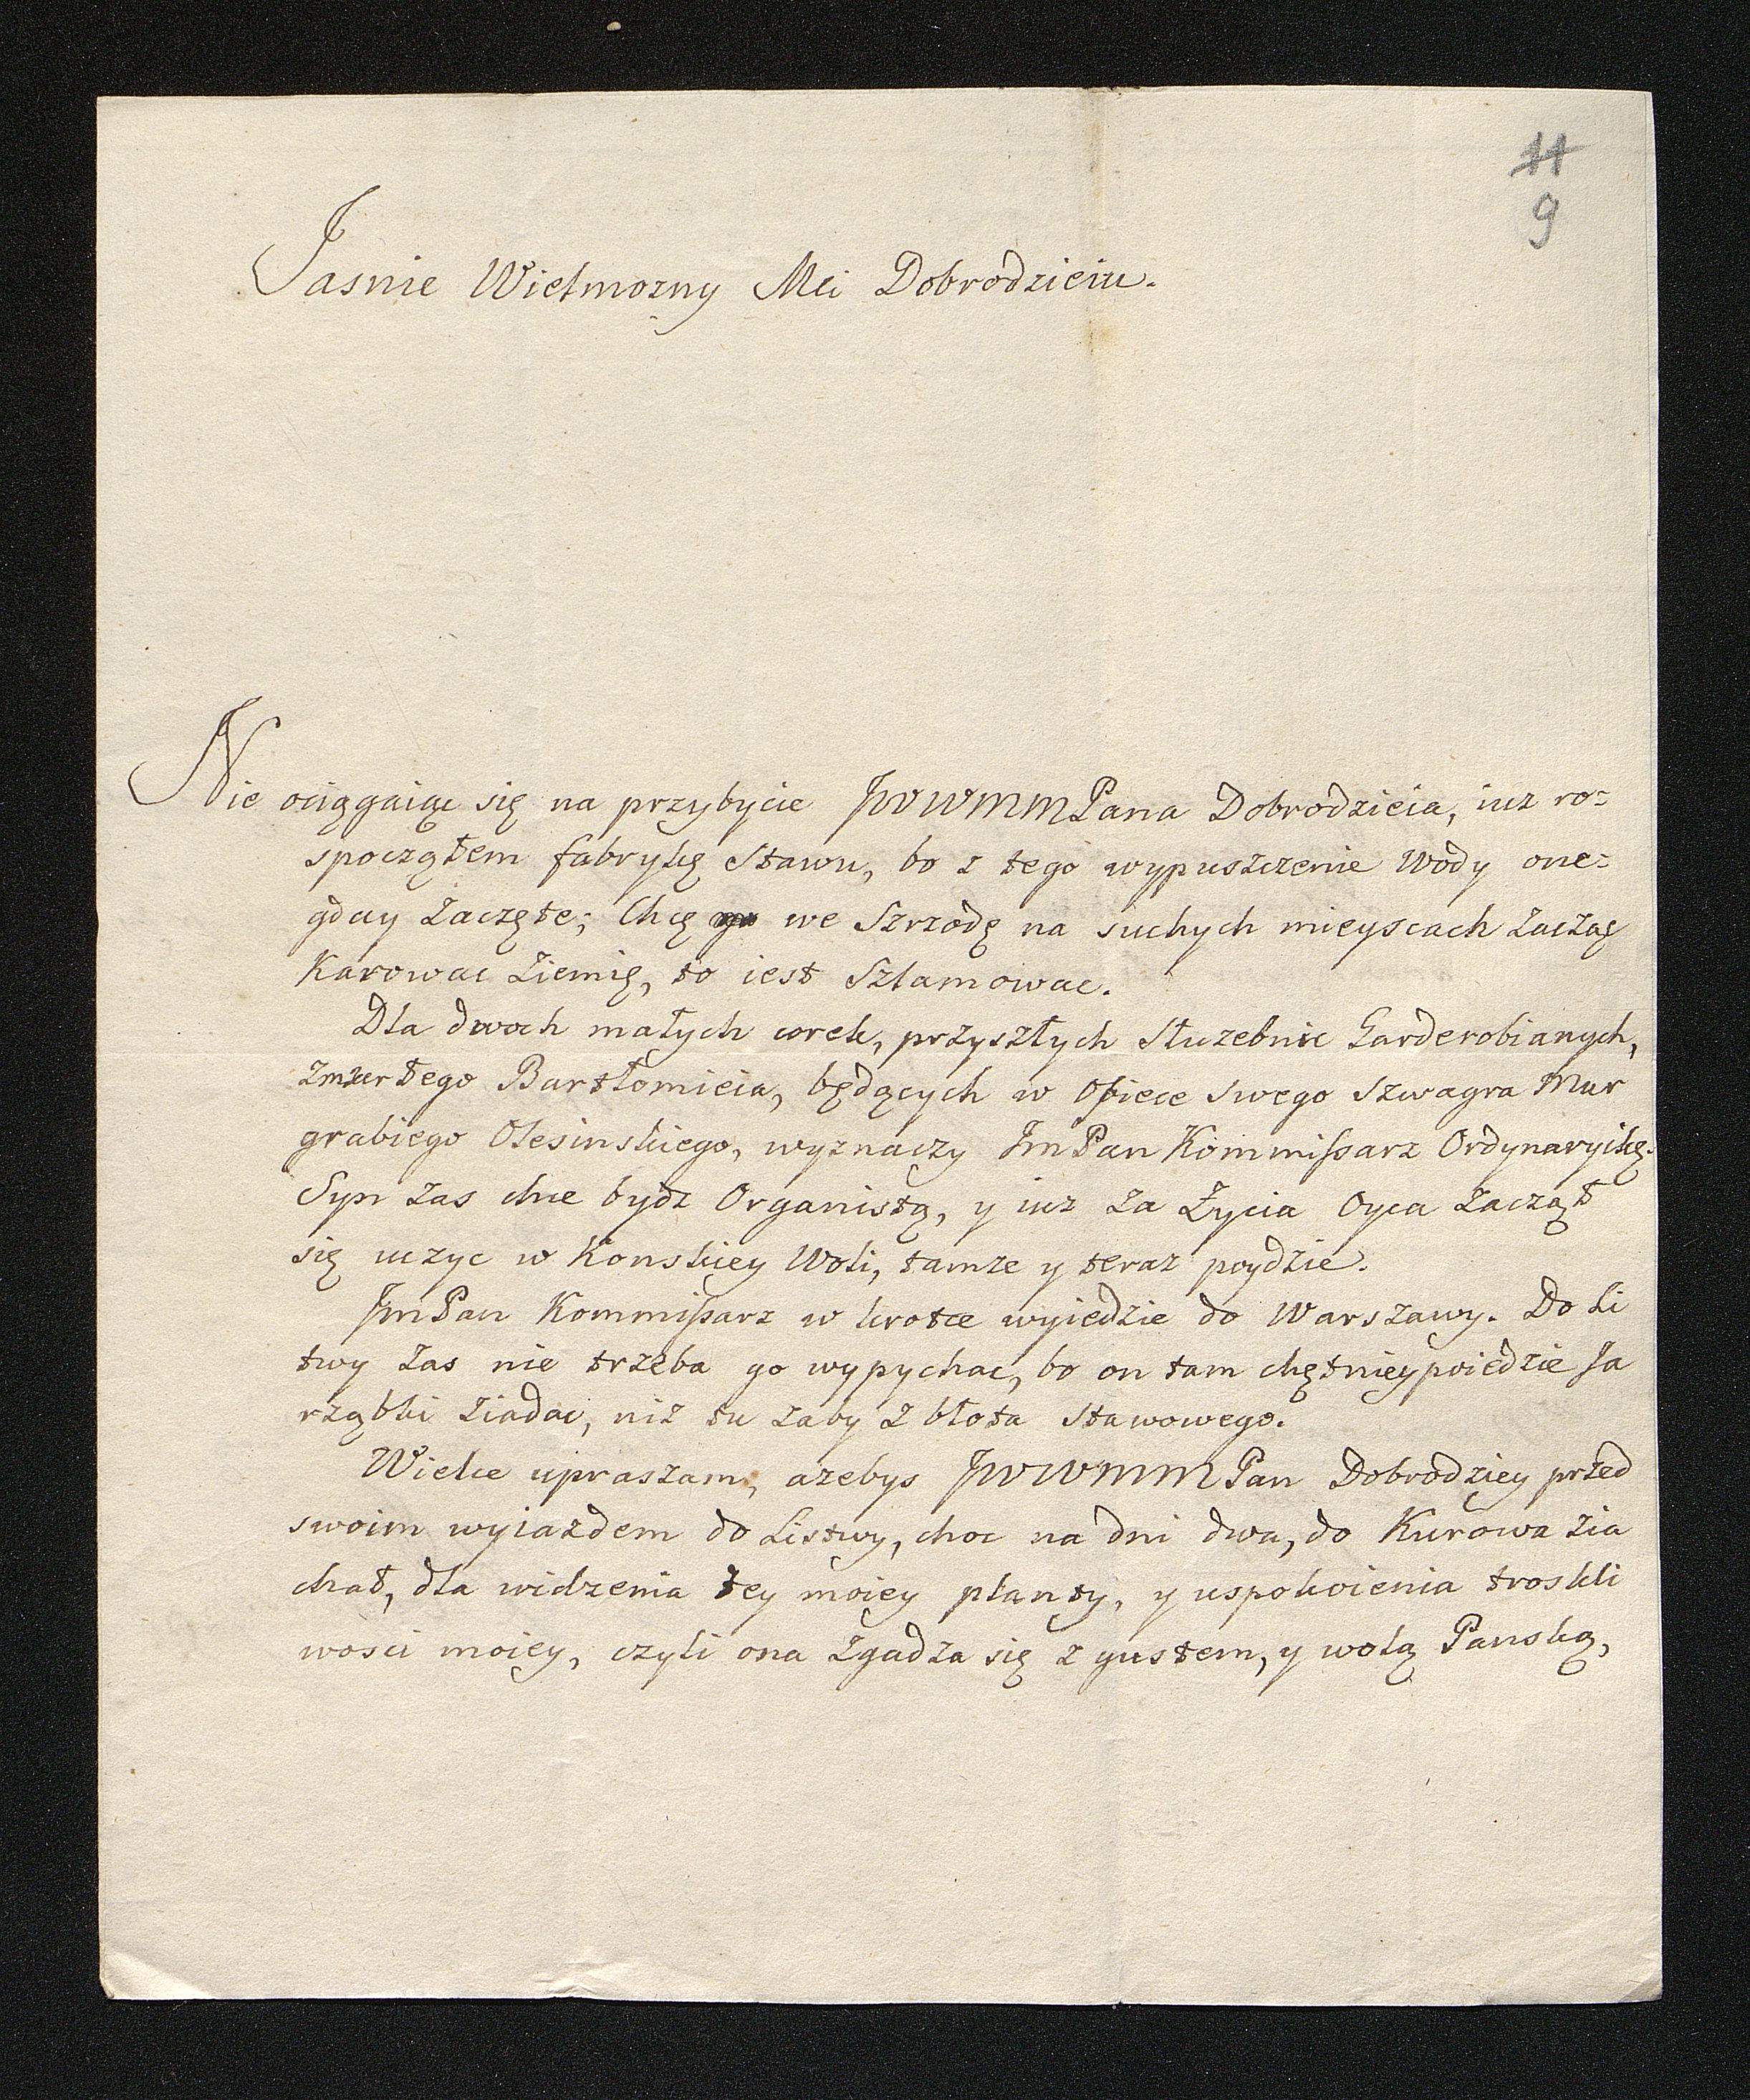 11
9
Jasnie Wielmozny Mci Dobrodzieiu.
Nie ociągaiąc się na przybycie JWWMMPana Dobrodzieia, iuz ro=
spocząłem fabrykę Stawu, bo z tego wypuszczenie Wody one=
gday Zaczęte; Chcę we Szrzodę na suchych mieyscach Zacząc
Karowac Ziemię, to iest Szlamowac.
Dla dwoch małych corek, przyszłych Słuzebnic Garderobianych,
Zmarłego Bartłomieia, będących w Opiece swego Szwagra Mur
grabiego Olesinskiego, wyznaczy JmPan Kommissarz Ordynaryikę.
Syn Zas chce bydz Organistą, y iuz Za Życia Oyca Zaczął
się uczyc w Konskiey Woli, tamze y teraz poydzie.
JmPan Kommissarz w krotce wyiedzie do Warszawy. Do Li
twy Zas nie trzeba go wypychac, bo on tam chętniey poiedzie Ja
rząbki Ziadac, niz tu Zaby Z błota Stawowego.
Wielce upraszam, azebys JWWMMPan Dobrodziey przed
swoim wyiazdem do Listwy, choc na dni dwa, do Kurowa Zia
chał, dla widzenia tey moiey planty, y uspokoienia troskli
wosci moiey, czyli ona Zgadza się z gustem, y wolą Panską,